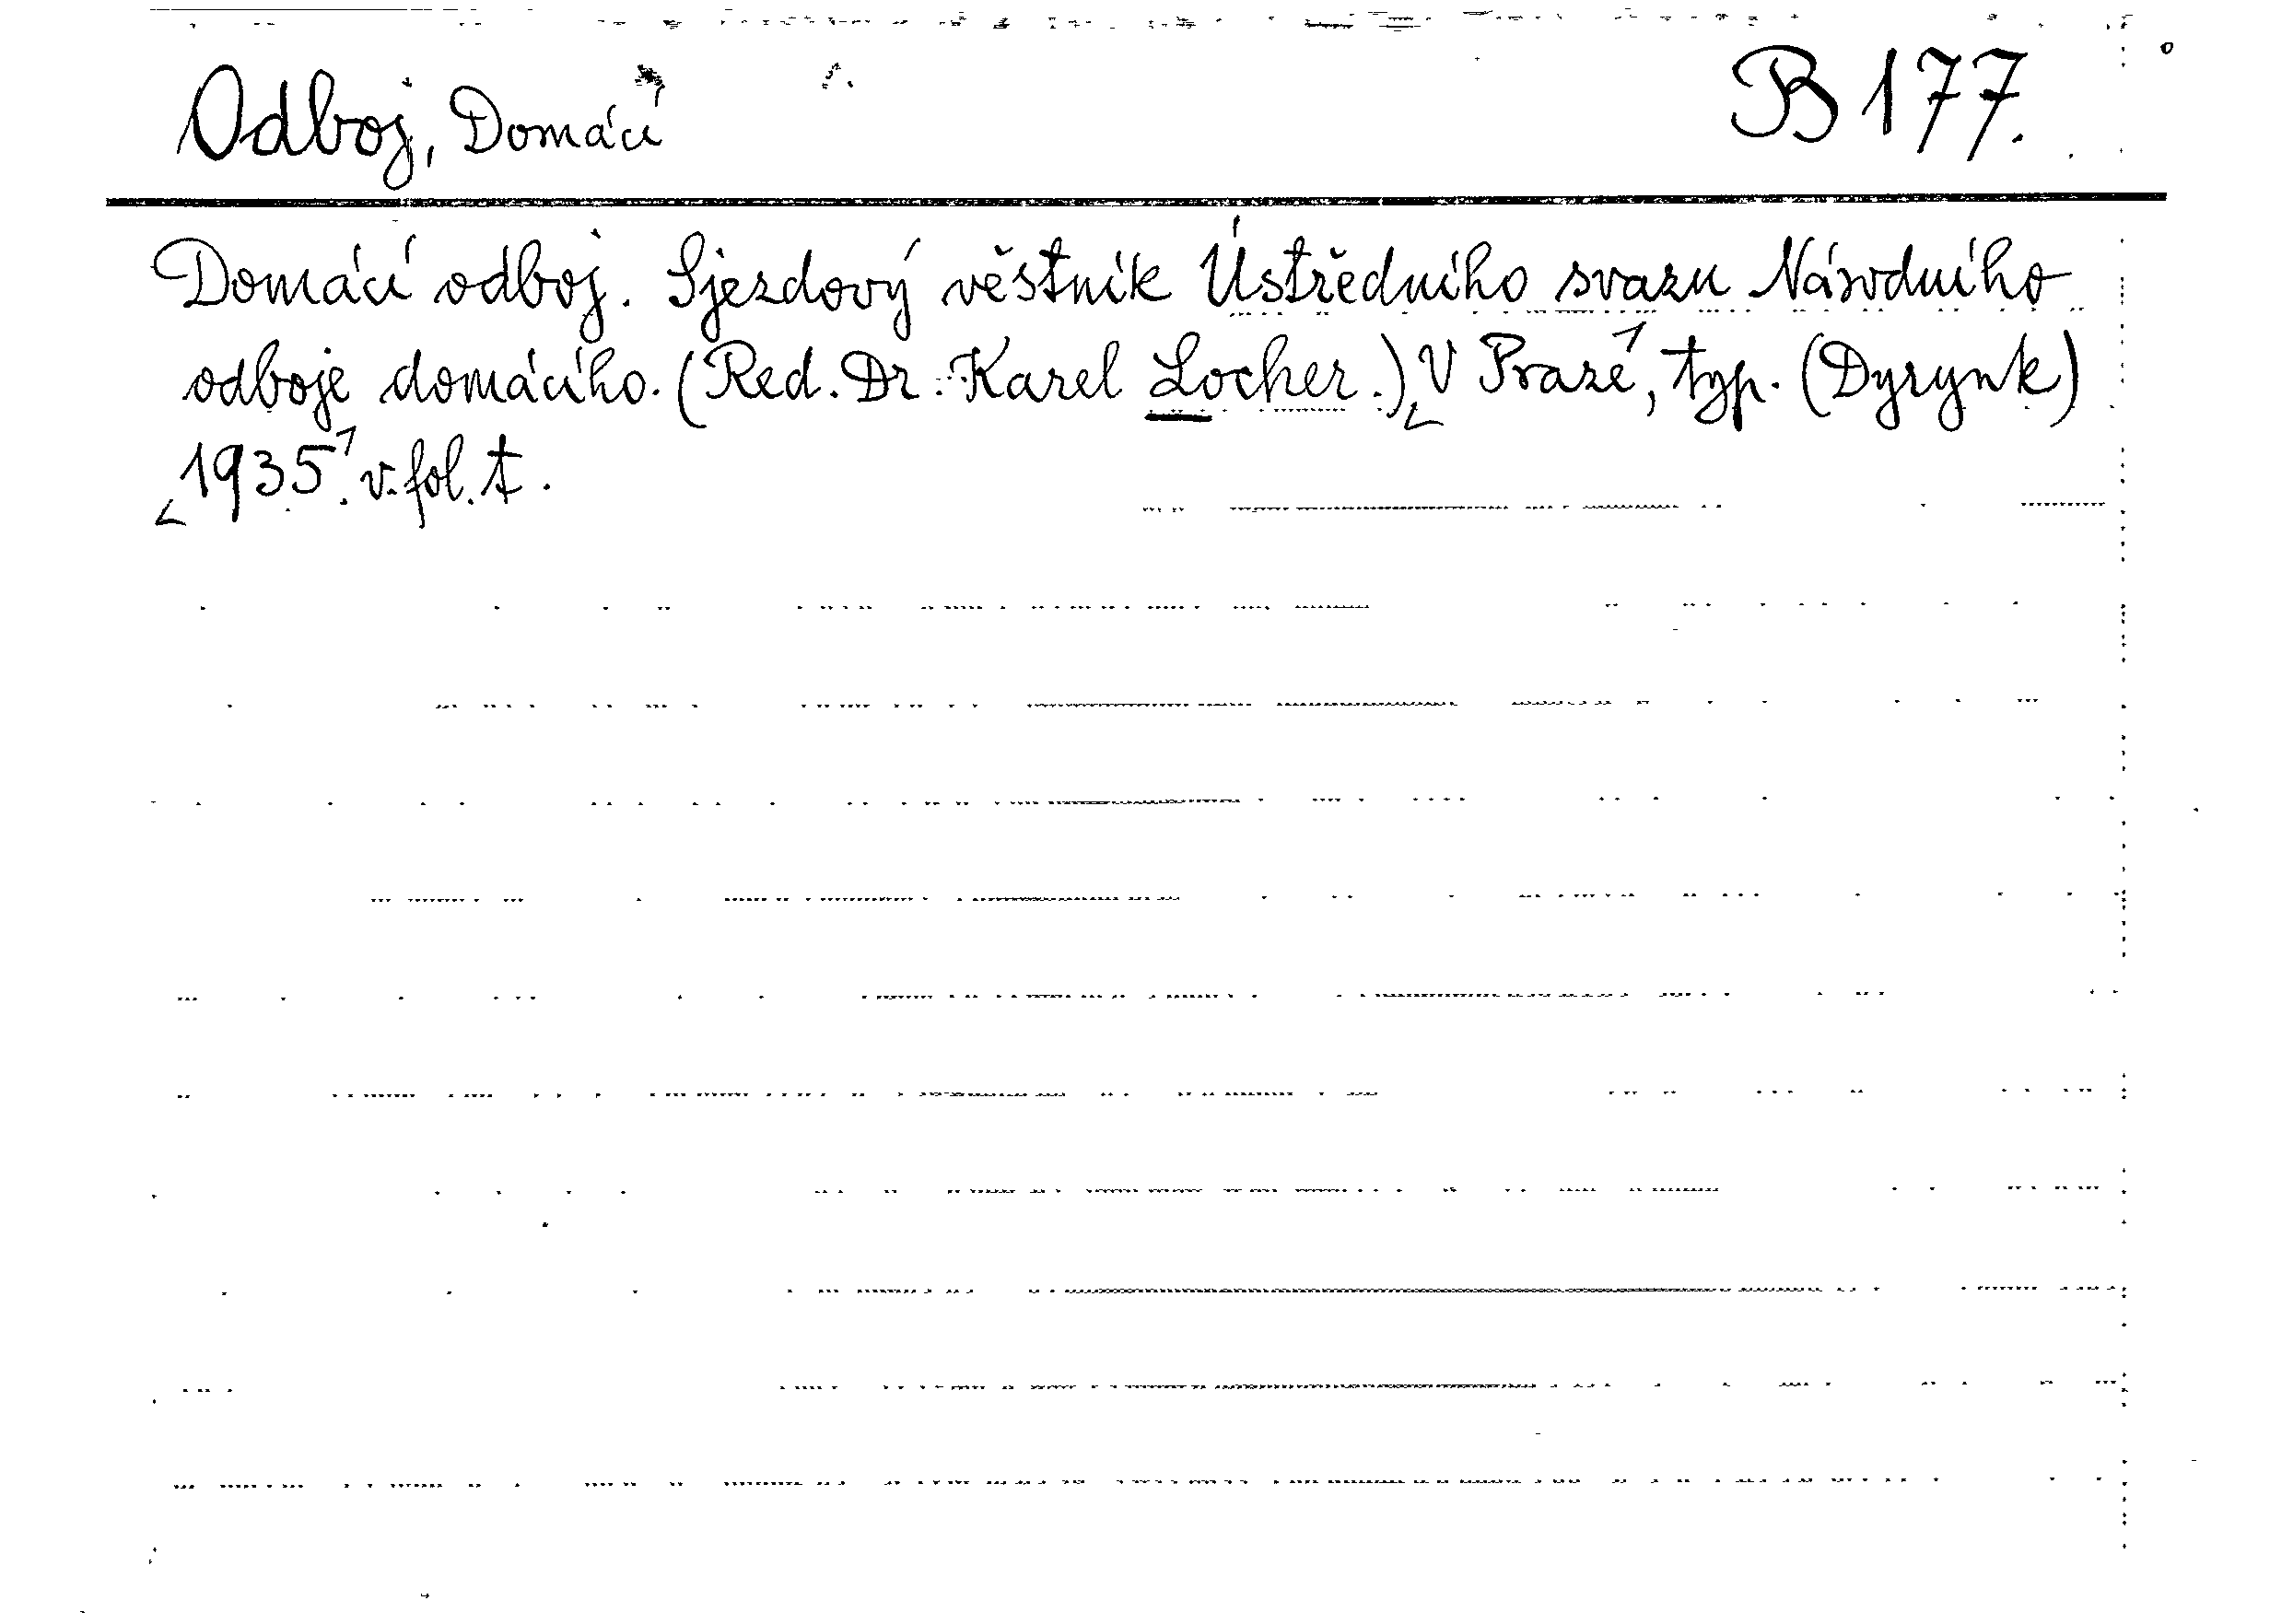 Odboj, Domácí B 177.
Domácí odboj. Sjezdový věstník Ústředního svazu Národního
odboje domácího. (Red. Dr. Karel Locher.) ⌞V Praze⌝, typ. (Dyrynk)
⌞1935⌝. v. fol. t.